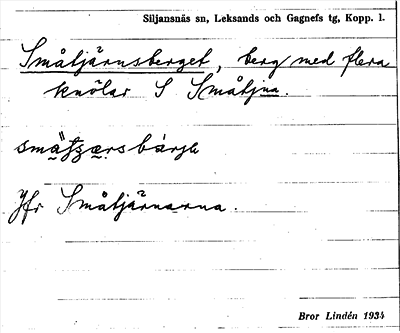 Siljansnäs sn, Leksands och Gagnefs tg, Kopp. l.
Småtjärnsberget, berg med flera
knölar S Småtjna.
Jfr Småtjärnarna.
Bror Lindén 1934